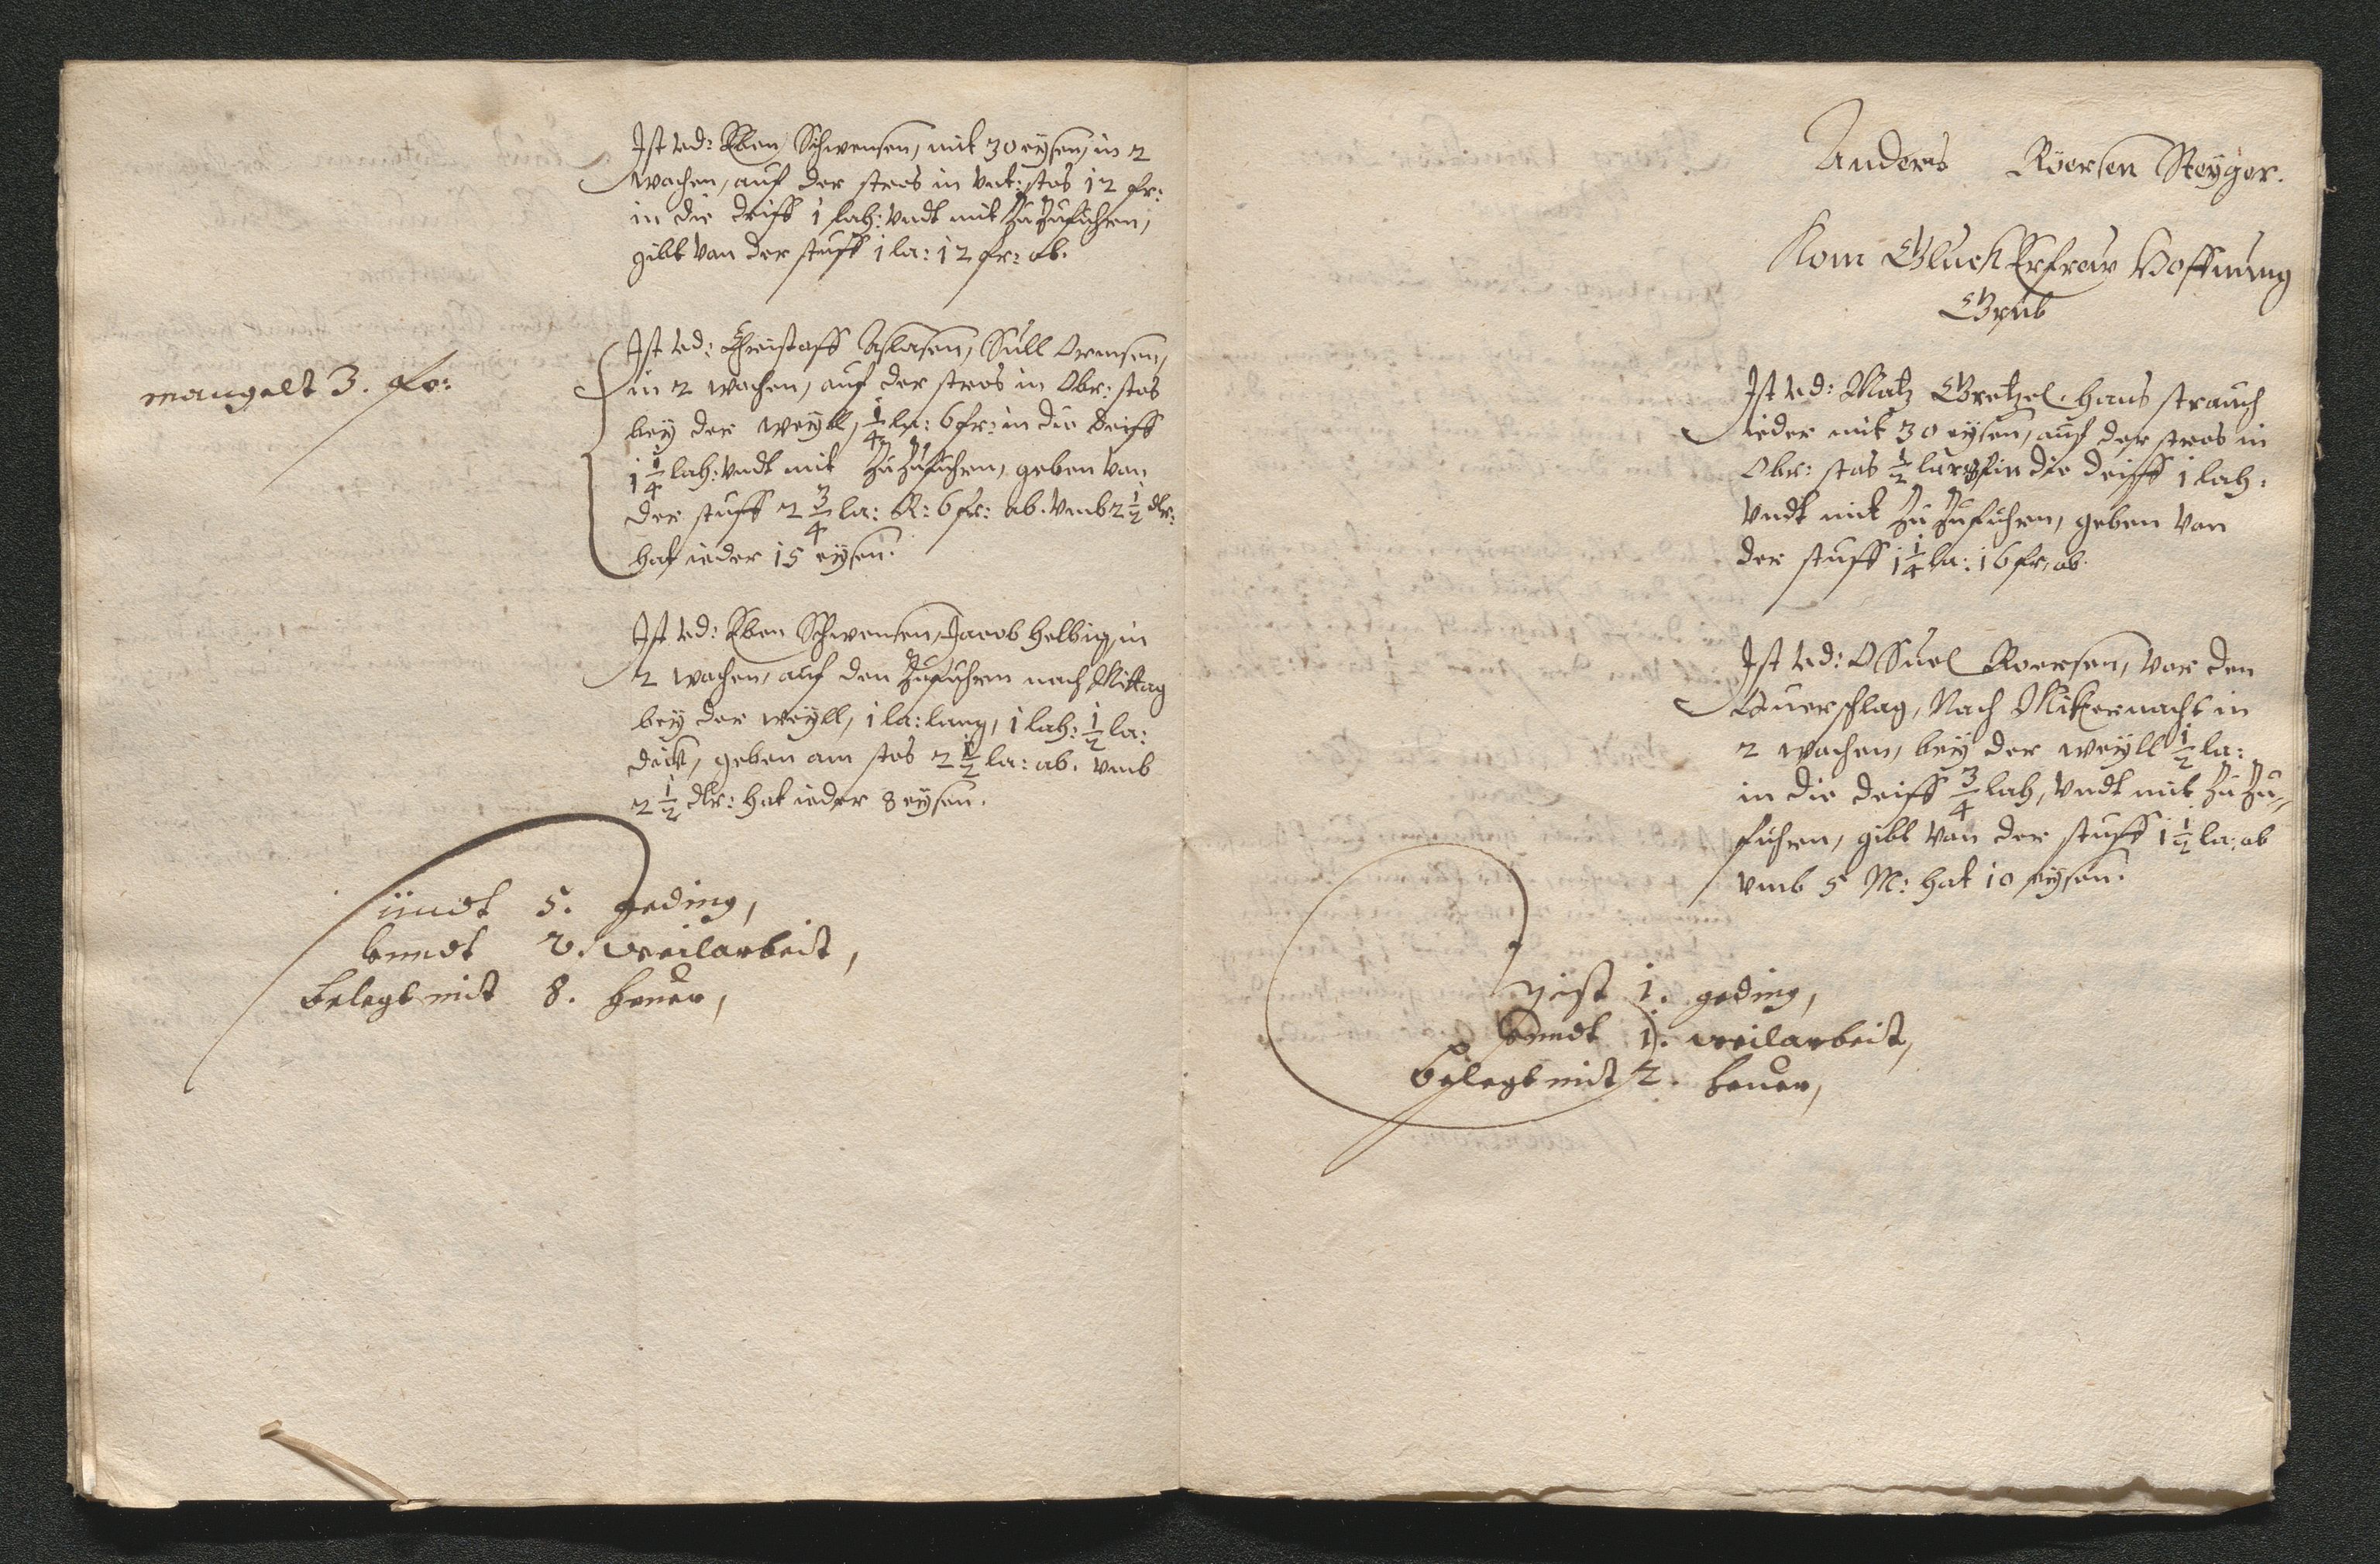 Ist ved: Eben Schwensen, mit 30 eysen, in 2
wochen, auf der stros in vnt: stos 12 fr:
in die deiff 1 lah: vndt mit Zu Zufuhren,
gibt von der stuff 1 la: 12 fr: ab.
mangelt 3. fr:
Ist ved: Christoff Aslasen, Sull Ormsen,
in 2 wochen, auf der stros in Obr: stos
bey der weyll, 1/4 la: 6 fr: in die deiff
1 1/4 lah: vndt mit Zu Zufuhren, geben von
der stuff 2 3/4 la: R: 6 fr: ab. vmb 2 1/2 dlr:
hat ieder 15 eysen.
Ist ved: Eben Schwensen, Jacob Helbig, in
2 wochen, auf den Zufuhren nach Mittag
bey der weyll, 1 la: lang, 1 lah: 1/2 la:
dick, geben am stos 2 1/2 la: ab. vmb
2 1/2 dlr: hat ieder 8 eysen.
sindt 5. geding,
vnndt 2. weilarbeit,
belegt mit 8. heuer,
Anders Röersen Steyger.
Kom Gluck Erfraw Hoffnung
Grub
Ist ved: Matz Gretzel, Hans strauch
ieder mit 30 eysen, auf der stros in
Obr: stos 1/2 in die deiff 1 lah:
vndt mit Zu Zufuhren, geben von
der stuff 1 1/4 la: 16 fr: ab.
Ist ved: OSuel Roersen, vor den
Querschlag, Nach Mitternacht in
2 wochen, bey der weyll 1/2 la:
in die deiff 3/4 lah, vndt mit Zu Zu,,
fuhren, gibt von der stuff 1 1/2 la: ab
vmb 5 M: hat 10 eysen.
ist 1. geding,
vnndt 1. weilarbeit,
belegt mit 2. heuer,